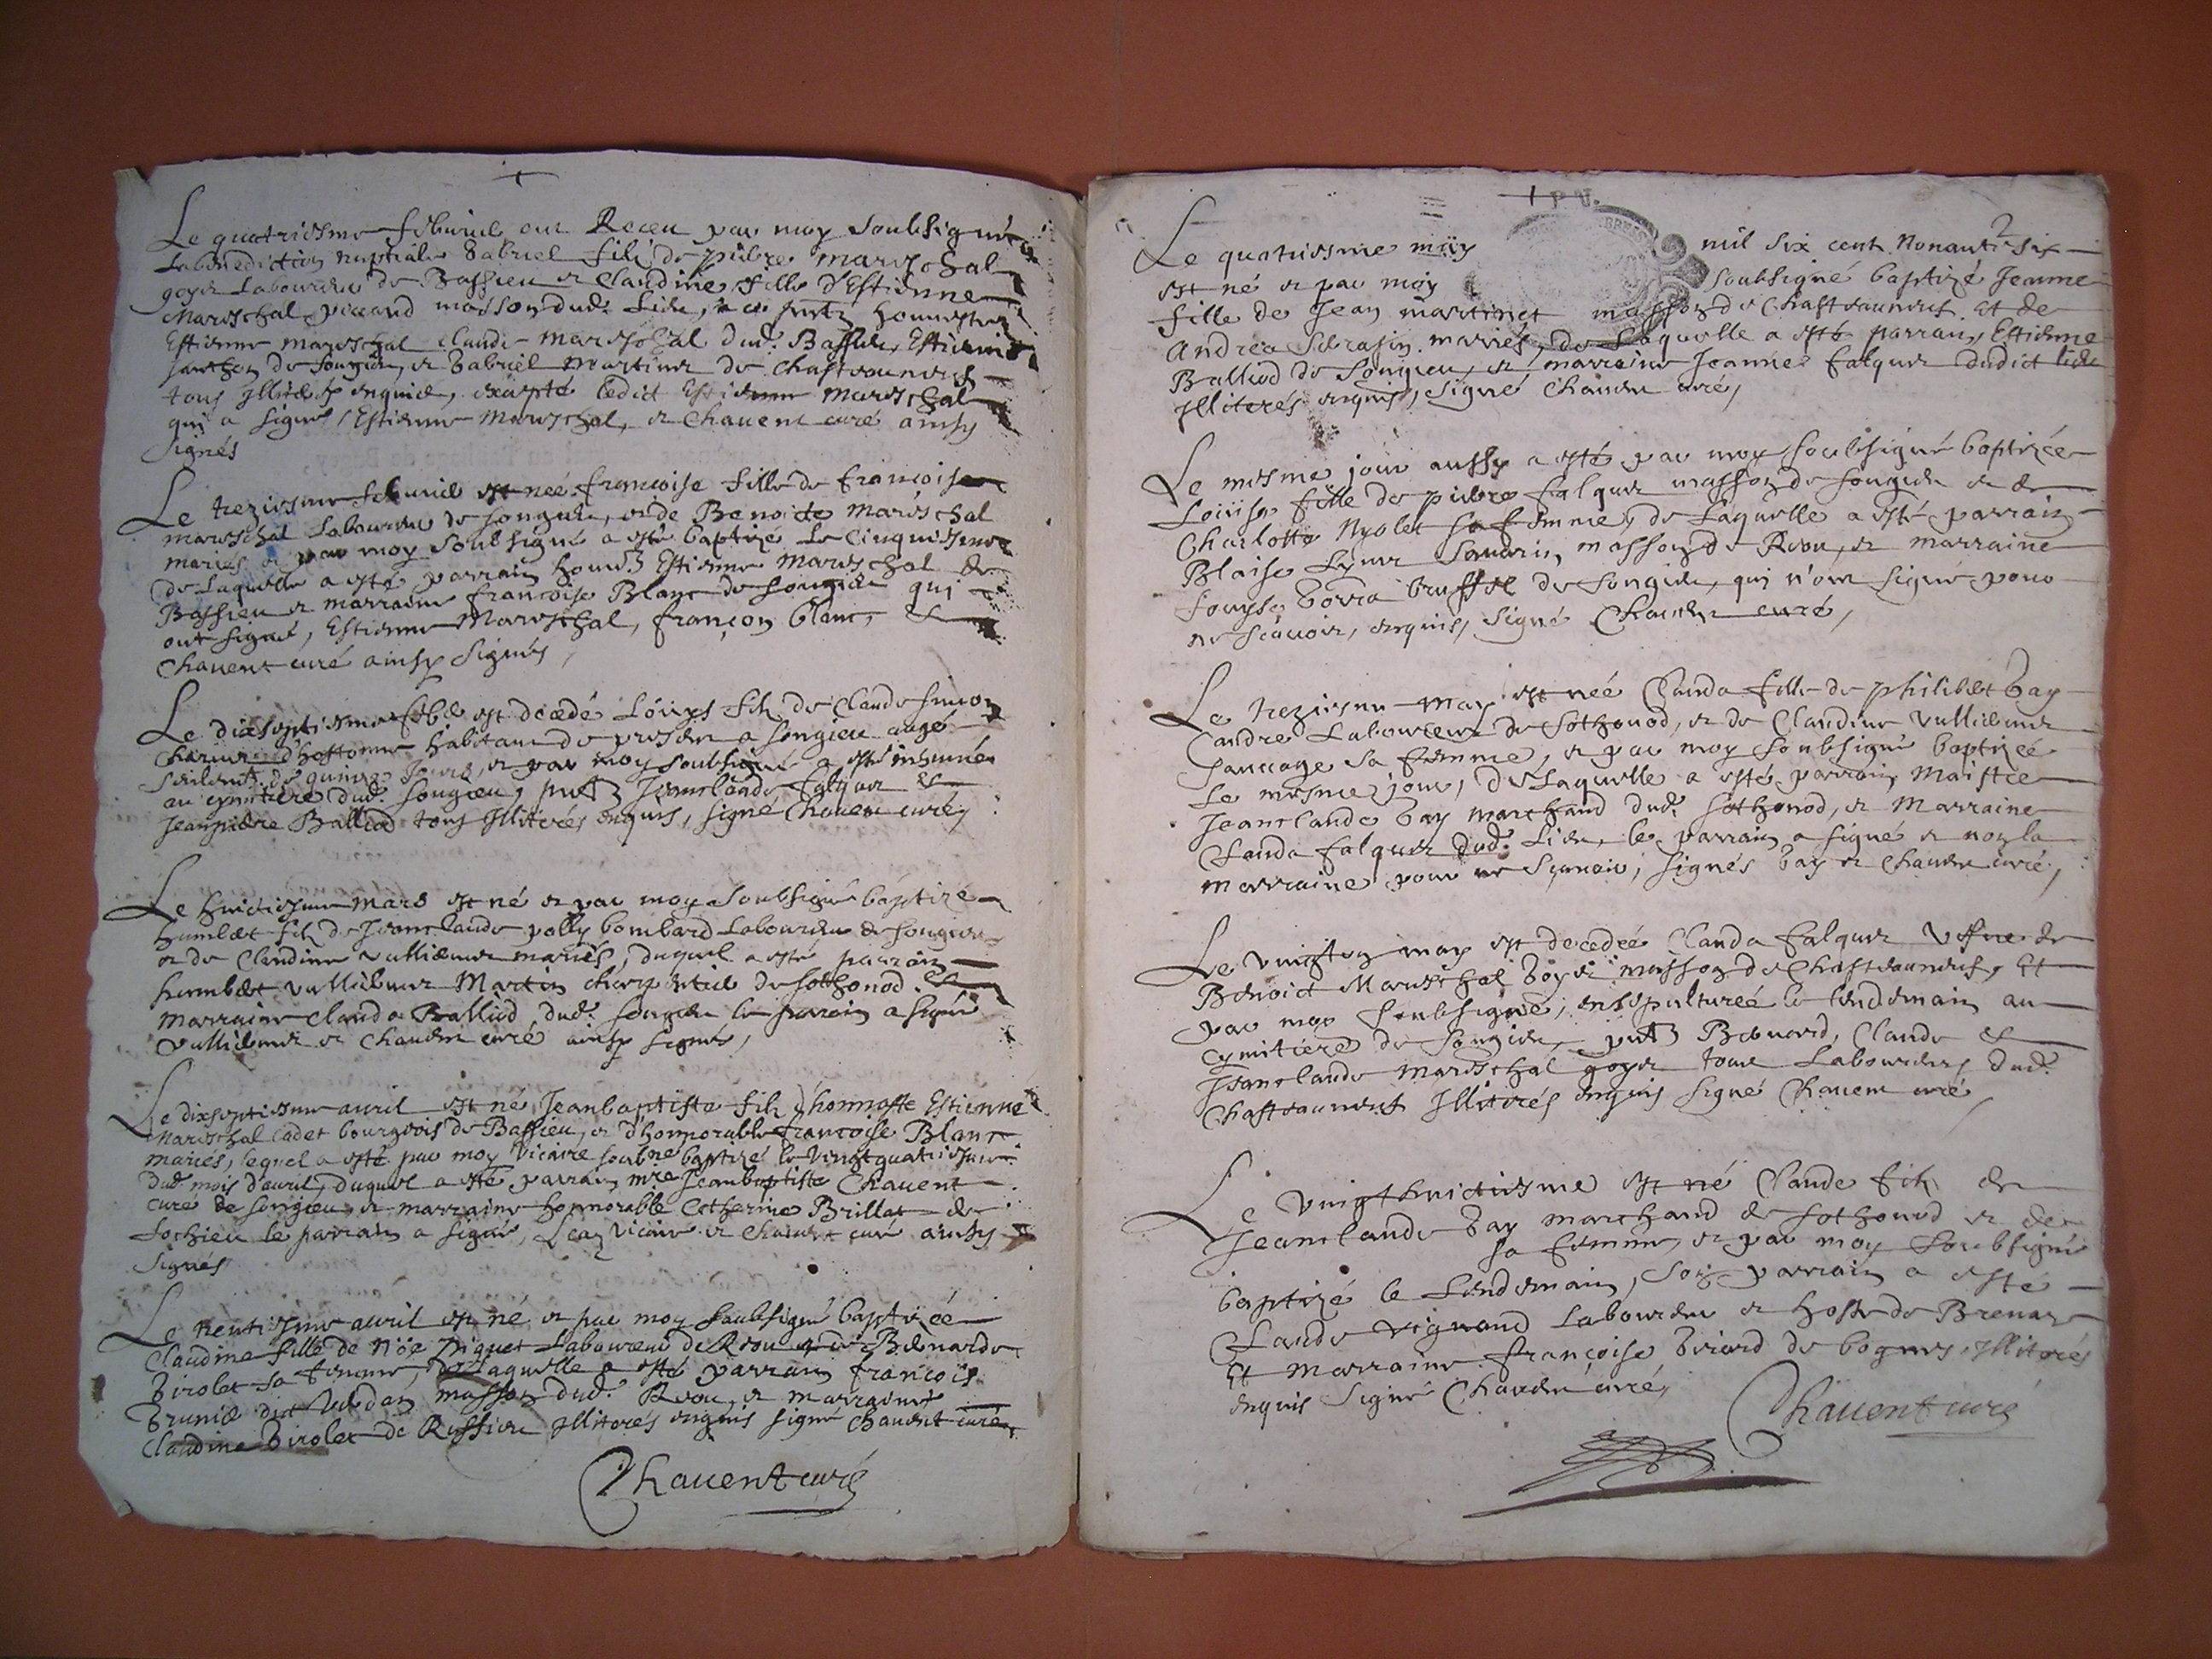 Le quatriesme febvrier ont Receu par moy soubsigné
la benediction nuptiale Gabriel fils de pierre mareschal
goyer Laboureur de Bassieu et Claudine fille d'Estienne
Mareschal piccand masson dud. Lieu, a ce pntz
Estienne mareschal claude mareschal dud. Bassieu, Estienne
de Songieu, et Gabriel Martinet de chasteauneuf
tous Illiterés enquis, excepté ledict Estienne mareschal
qui a signé Estienne Mareschal, et Chavent curé ainsy
signés
Le trezieme febvrier est née francoise fille de francoise
mareschal Laboureur de Songieu, et de Benoite mareschal
mariés et par moy soubsigné a esté baptizé Le cinquiesme
de Laquelle a esté parrain Estienne mareschal de
Bassieu et marraine francoise Blanc de Songieu qui
ont signé, Estienne Mareschal, françon blanc, &
Chavent curé ainsy signés,
Le dixseptiesme feb. est decedé Loüys fils de Claude
d'hostonne habitant de present a Songieu aagé
seulemt. de quinze Jours, et par moy soubsigné a esté inhumé
au cymitiere dud. Songieu, pntz Jeanclaude falquet &
Jeanpierre Balliod tous Illiterés enquis, signé Chavent curé,
Le huictiesme Mars est né et par moy Soubsigné baptizé
humbert fils de Jeanclaude polly bombard Laboureur de Songieu
et de Claudine vulliemet mariés, duquel a esté parrain
humbert vulliemet Martin charpentier de Sothonod &
Marraine Clauda Balliod dud. Songieu le parrain a signé
Vulliemet et Chavent curé ainsy signés,
Le dixseptiesme avril est né Jeanbaptiste fils d'honneste Estienne
Mareschal Cadet bourgeois de Bassieu, et d'honnorable francoise Blanc
mariés, lequel a esté par moy Vicaire soubné baptizé le vingtquatriesme
dud. mois d'avril, duquel a esté parrain mre Jeanbaptiste Chavent
curé de Songieu et marraine honnorable Catherine Brillat de
Lochieu le parrain a signé, vicaire et Chavent curé ainsy
signés
Le trentiesme avril est né et par moy Soubsigné baptizée
Claudine fille de Nöe Laboureur de Rvou et de Bernarde
Girolet sa femme, de Laquelle a esté parrain francois
masson dud. Rvou, et marraine
Claudine Girolet de Ruffieu Illiterés enquis signé Chavent curé,
Chavent curé
2
Le quatriesme maÿ mil six cent Nonante six
est né et par moy soubsigné baptizé Jeanne
fille de Jean martinet masson de Chasteauneuf Et de
Andrea Serasin mariés, de Laquelle a esté parrain Estienne
Balliod de Songieu, et marraine Jeanne falquet dudict lieu
Illiterés enquis, signé Chavent curé,
Le mesme jour aussy a esté par moy soubsigné baptizée
Loüise fille de pierre falquet masson de Songieu et de
Charlotte Nyolet sa femme, de Laquelle a esté parrain
Blaise masson de Rvou, et marraine
de Songieu, qui n'ont signé pour
ne scavoir, enquis, signé Chavent curé,
Le trezieme May est née Clauda fille de philibert Gay
Candre Laboureur de Sothonod, et de Claudine Vulliemet
Sauvage sa femme, et par moy soubsigné baptizée
Le mesme jour, de Laquelle a esté parrain Maistre
Jeanclaude Gay marchand dud. Sothonod, et Marraine
Clauda falquet dud. Lieu, le parrain a signé et non la
marraine pour ne Scavoir, signés Gay et Chavent curé,
Le vingt may est decedée Clauda falquet Vefve de
Benoict Mareschal Goyet masson de Chasteauneuf, Et
par moy soubsigné, ensepulturée le lendemain au
Cymitiere de Songieu, pntz Bernard, Claude &
Jeanclaude mareschal goyet tous Laboureurs dud.
Chasteauneuf Illiterés enquis signé Chavent curé,
Le vingthuictiesme est né Claude fils de
Jeanclaude Gay marchand de Sothonod et de
sa femme, et par moy soubsigné
baptizé le Lendemain, son parrain a esté
Claude vignand Laboureur et hoste de Brenaz
Et Marraine françoise Girard de bognes Illiterés
enquis Signé Chavent curé,
Chavent curé